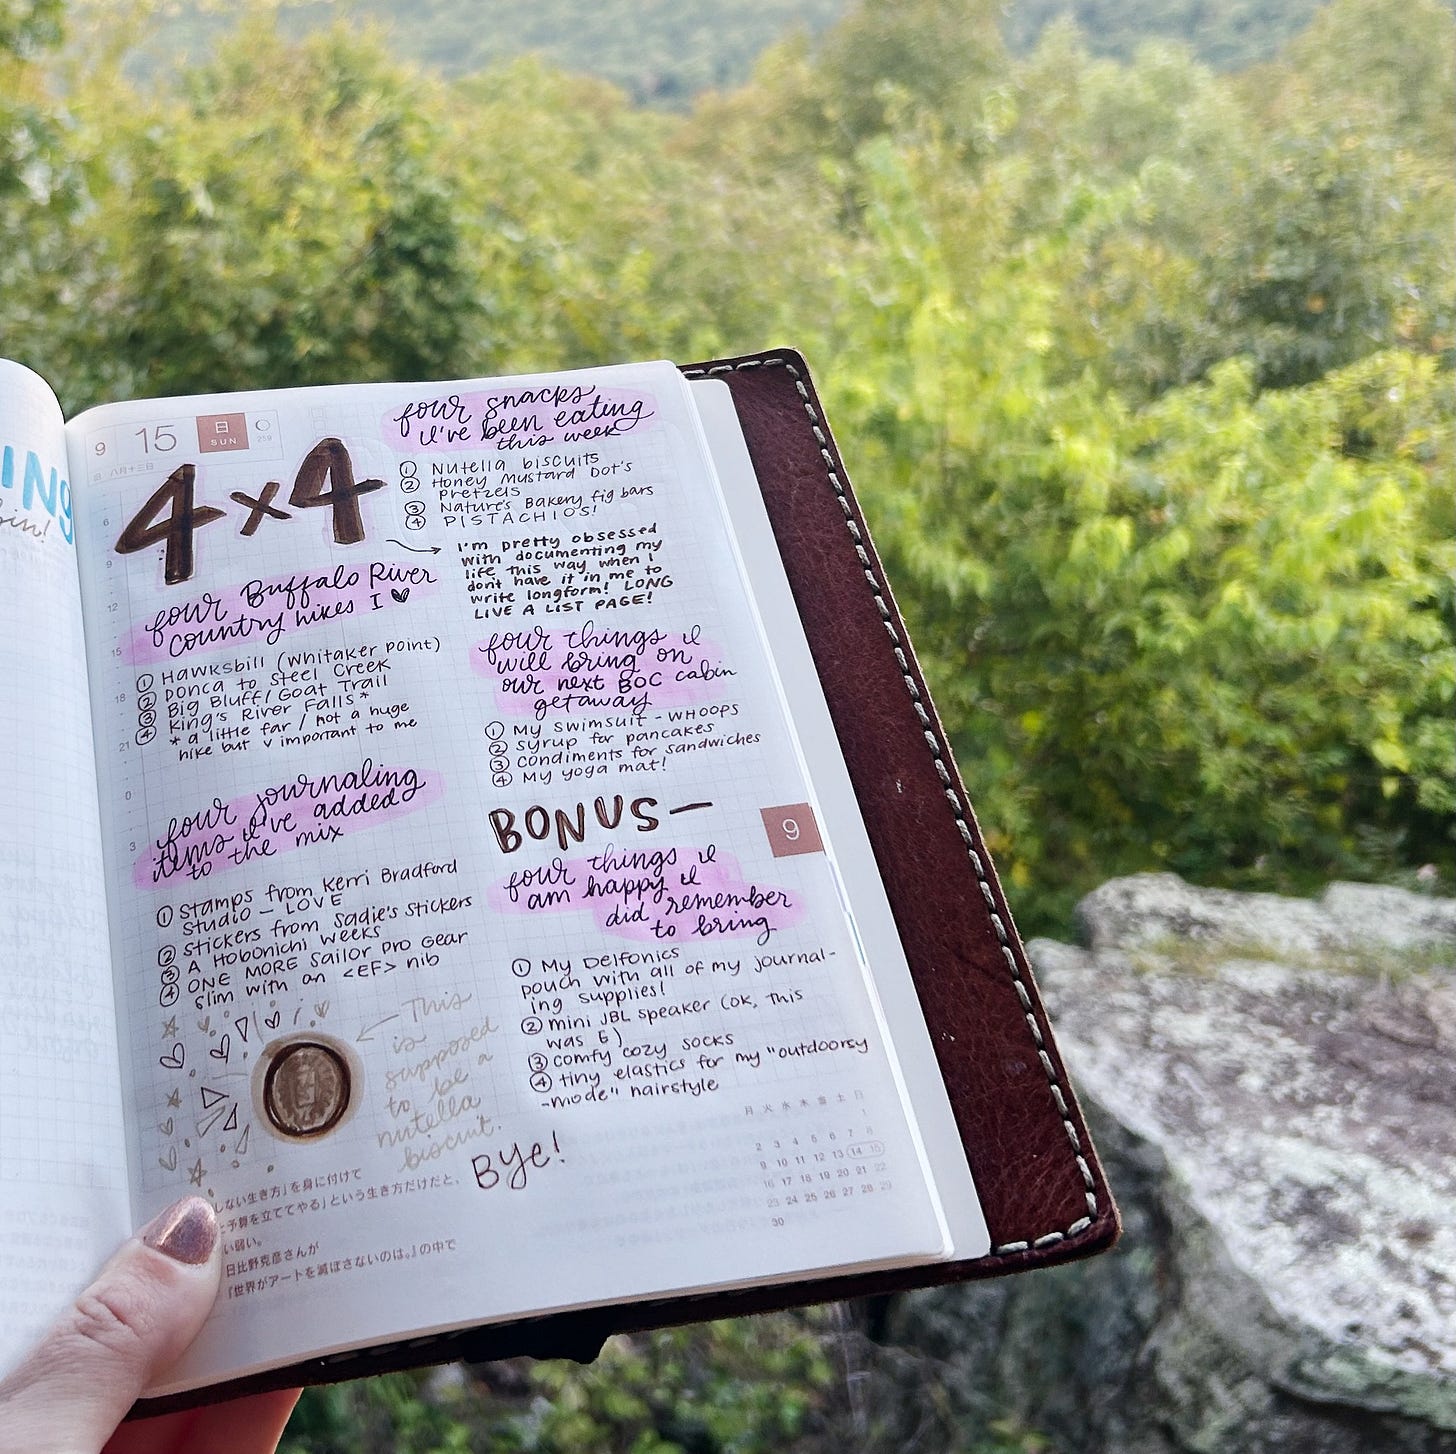 ING
9 15 日 SUN
259
4x4
four Buffalo River
country hikes I ♥
① Hawksbill (Whitaker Point)
② Ponca to Steel Creek
③ Big Bluff/Goat Trail
④ King's River Falls*
* a little far / not a huge
hike but v important to me
four journaling
items I've added
to the mix
① Stamps from Kerri Bradford
Studio - LOVE
② Stickers from Sadie's Stickers
③ A Hobonichi Weeks
④ ONE MORE Sailor Pro Gear
Slim with an <EF> nib
This
is
supposed
to be a
nutella
biscuit.
four snacks
I've been eating
this week
① Nutella biscuits
② Honey Mustard Dot's
pretzels
③ Nature's Bakery fig bars
④ PISTACHIOS!
I'm pretty obsessed
with documenting my
life this way when I
don't have it in me to
write longform! LONG
LIVE A LIST PAGE!
four things I
will bring on
our next BOC cabin
getaway
① My swimsuit - WHOOPS
② syrup for pancakes
③ condiments for sandwiches
④ My yoga mat!
BONUS—
four things I
am happy I
did remember
to bring
① My Delfonics
pouch with all of my journal-
ing supplies!
② mini JBL speaker (OK, this
was G)
③ comfy cozy socks
④ tiny elastics for my "outdoorsy
-mode" hairstyle
Bye!
9
6
9
12
15
18
21
0
3
しない生き方」を身に付けて
予算を立ててやる」という生き方だけだと、
い弱い。
日比野克彦さんが
『世界がアートを滅ぼさないのは。』の中で
月 火 水 木 金 土 日
1
2 3 4 5 6 7 8
9 10 11 12 13 14 15
16 17 18 19 20 21 22
23 24 25 26 27 28 29
30